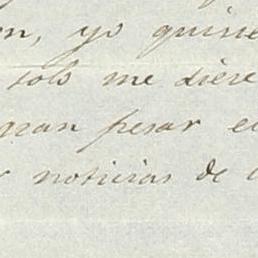 en, yo quisie
solo me diere
gran pesar e
noticias de